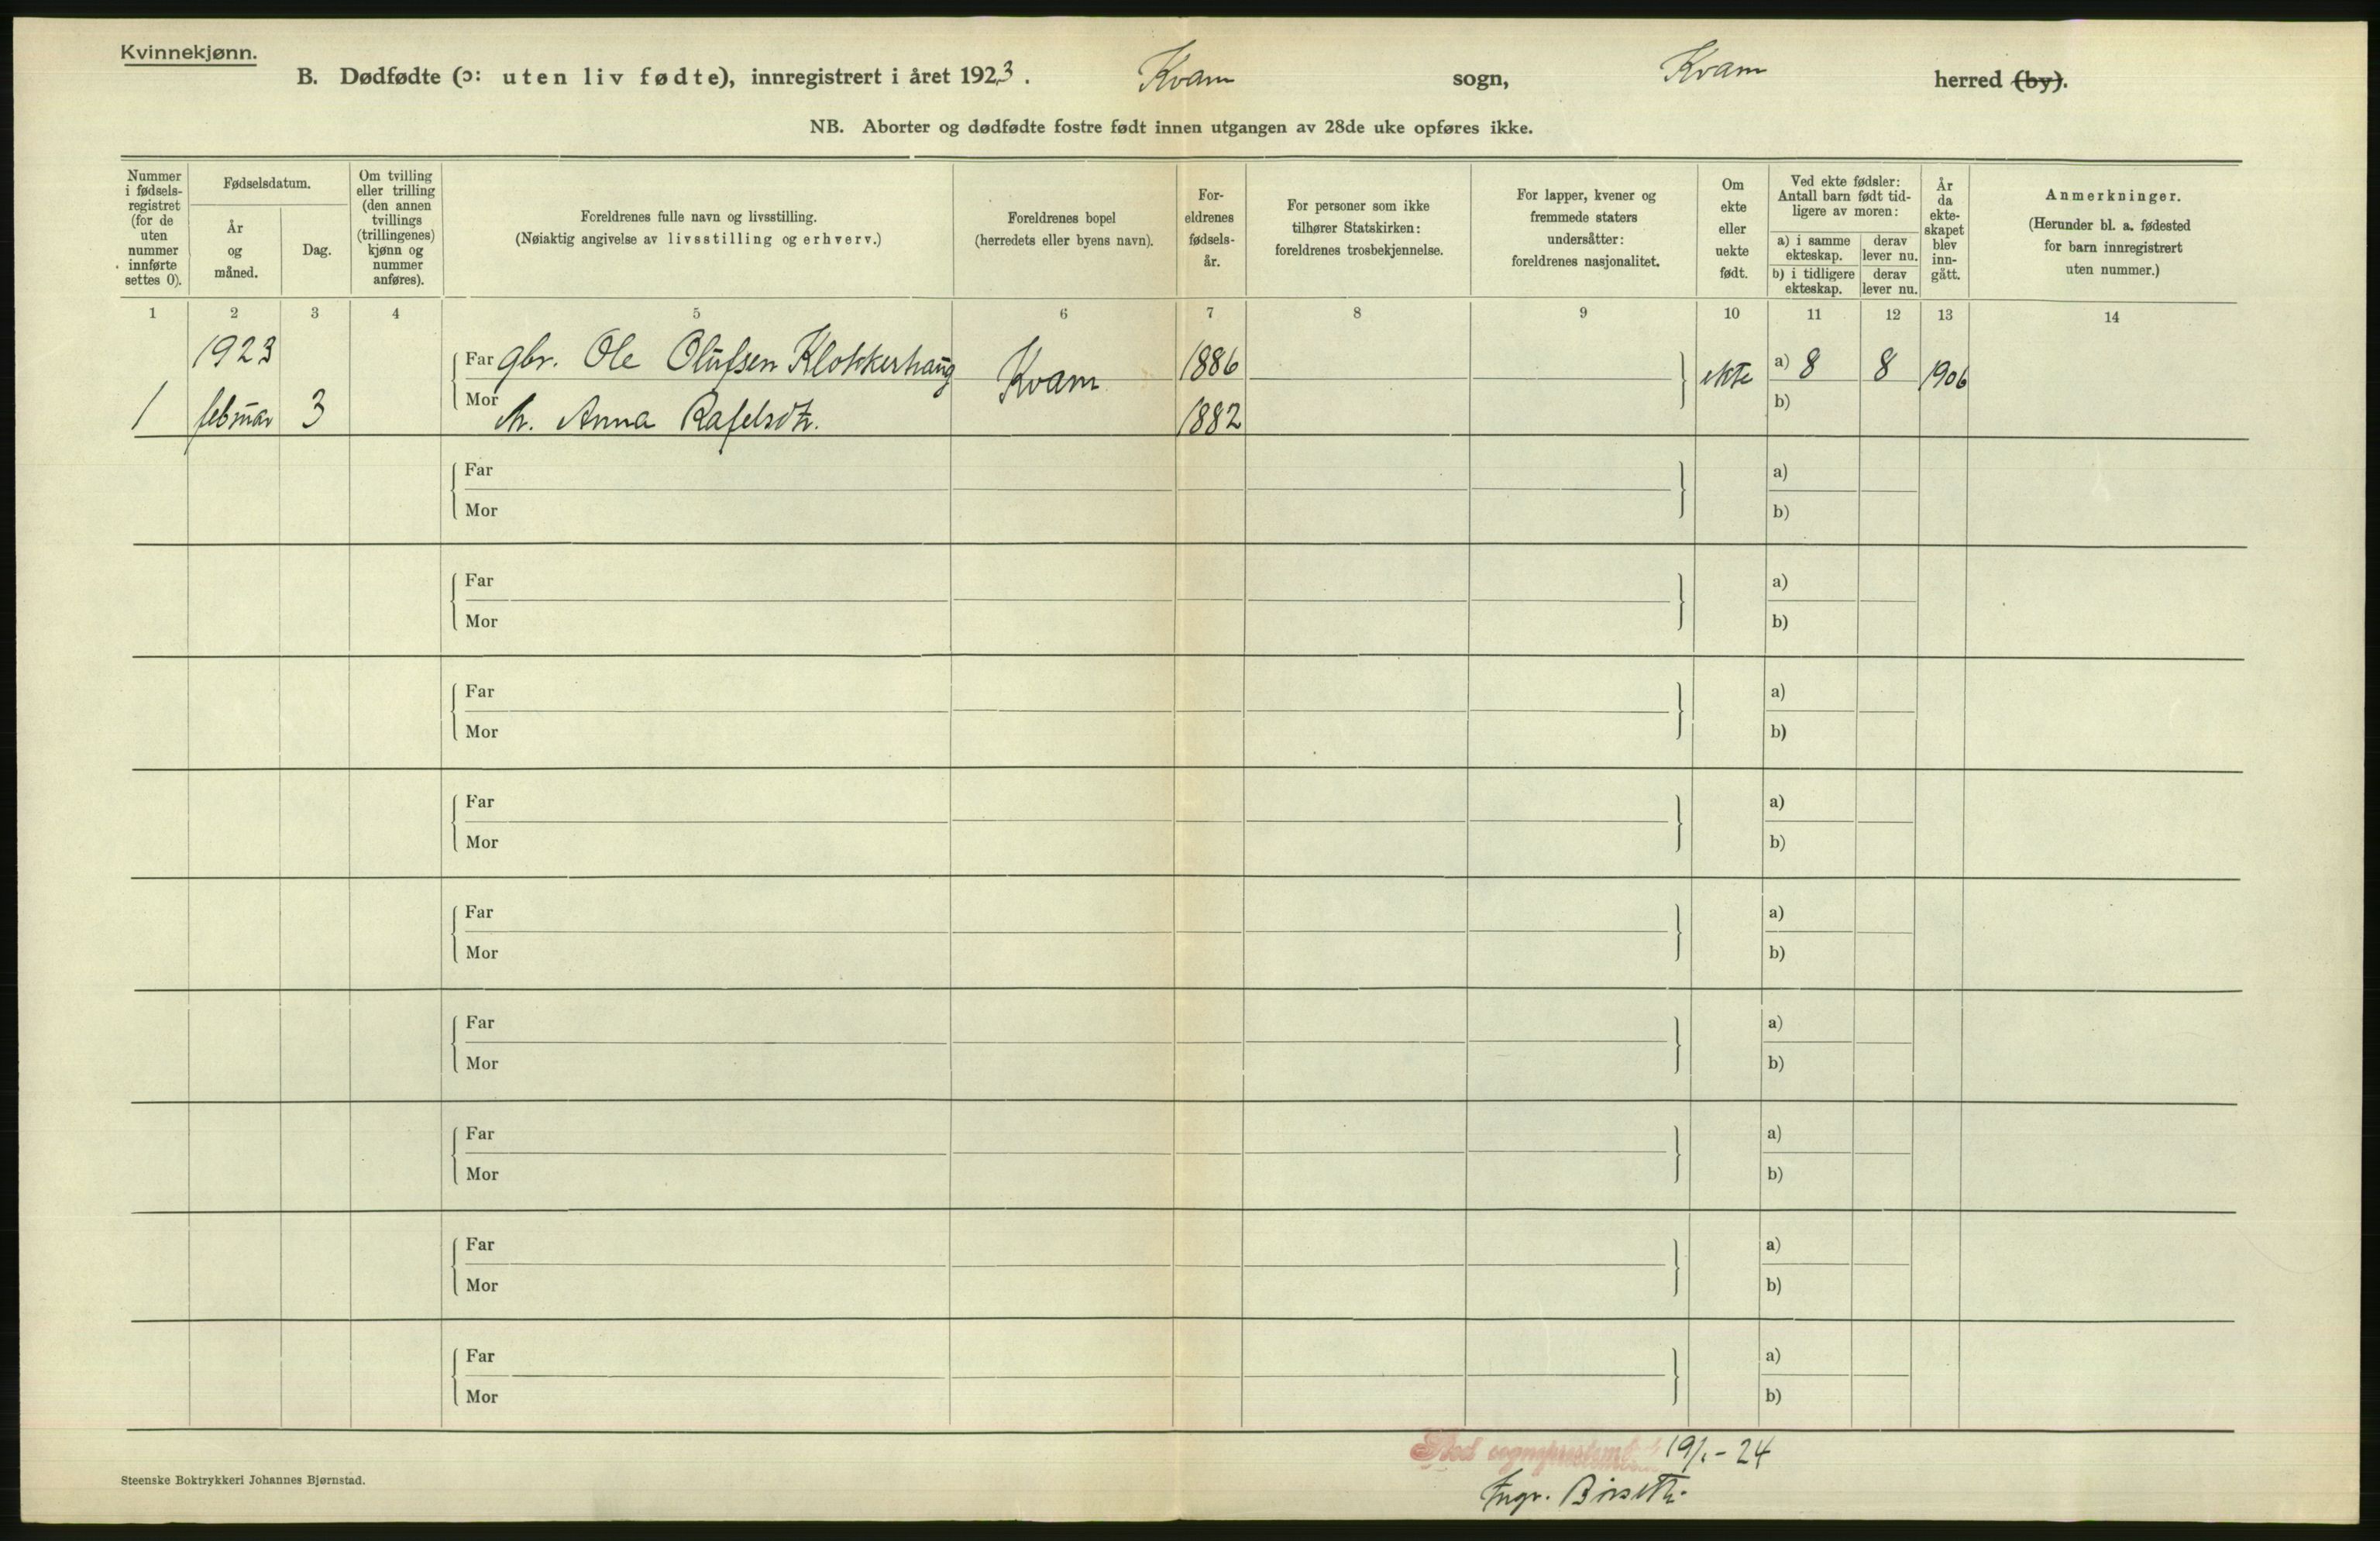 Kvinnekjønn.
B. Dødfødte (ɔ: uten liv fødte), innregistrert i året 1923. Kvam sogn, Kvam herred (by).
NB. Aborter og dødfødte fostre født innen utgangen av 28de uke opføres ikke.
Nummer i fødsels-registret (for de uten nummer innførte settes 0).
Fødselsdatum.
År og måned.
Dag.
Om tvilling eller trilling (den annen tvillings (trillingenes) kjønn og nummer anføres).
Foreldrenes fulle navn og livsstilling.
(Nøiaktig angivelse av livsstilling og erhverv.)
Foreldrenes bopel
(herredets eller byens navn).
For-eldrenes fødsels-år.
For personer som ikke tilhører Statskirken: foreldrenes trosbekjennelse.
For lapper, kvener og fremmede staters undersåtter: foreldrenes nasjonalitet.
Om ekte eller uekte født.
Ved ekte fødsler: Antall barn født tid-ligere av moren:
a) i samme ekteskap.
derav lever nu.
b) i tidligere ekteskap.
derav lever nu.
År da ekte-skapet blev inn-gått.
Anmerkninger.
(Herunder bl. a. fødested for barn innregistrert uten nummer.)
1 2 3 4 5 6 7 8 9 10 11 12 13 14
1923
Far gbr. Ole Olufsen Klokkerhaug Kvam 1886 ekte a) 8 8 1906
1 februar 3
Mor h. Anna Rafelsdtr. 1882 b)
Far a)
Mor b)
Far a)
Mor b)
Far a)
Mor b)
Far a)
Mor b)
Far a)
Mor b)
Far a)
Mor b)
Far a)
Mor b)
Far a)
Mor b)
Far a)
Mor b)
19/1-24
Steenske Boktrykkeri Johannes Bjørnstad.